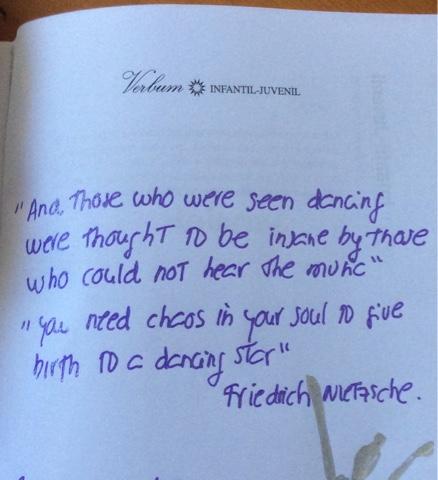 Verbum INFANTIL-JUVENIL
"And, Those who were seen dancing
were thought to be insane by those
who could not hear the music"
"you need chaos in your soul to give
birth to a dancing star"
Friedrich Nietzsche.